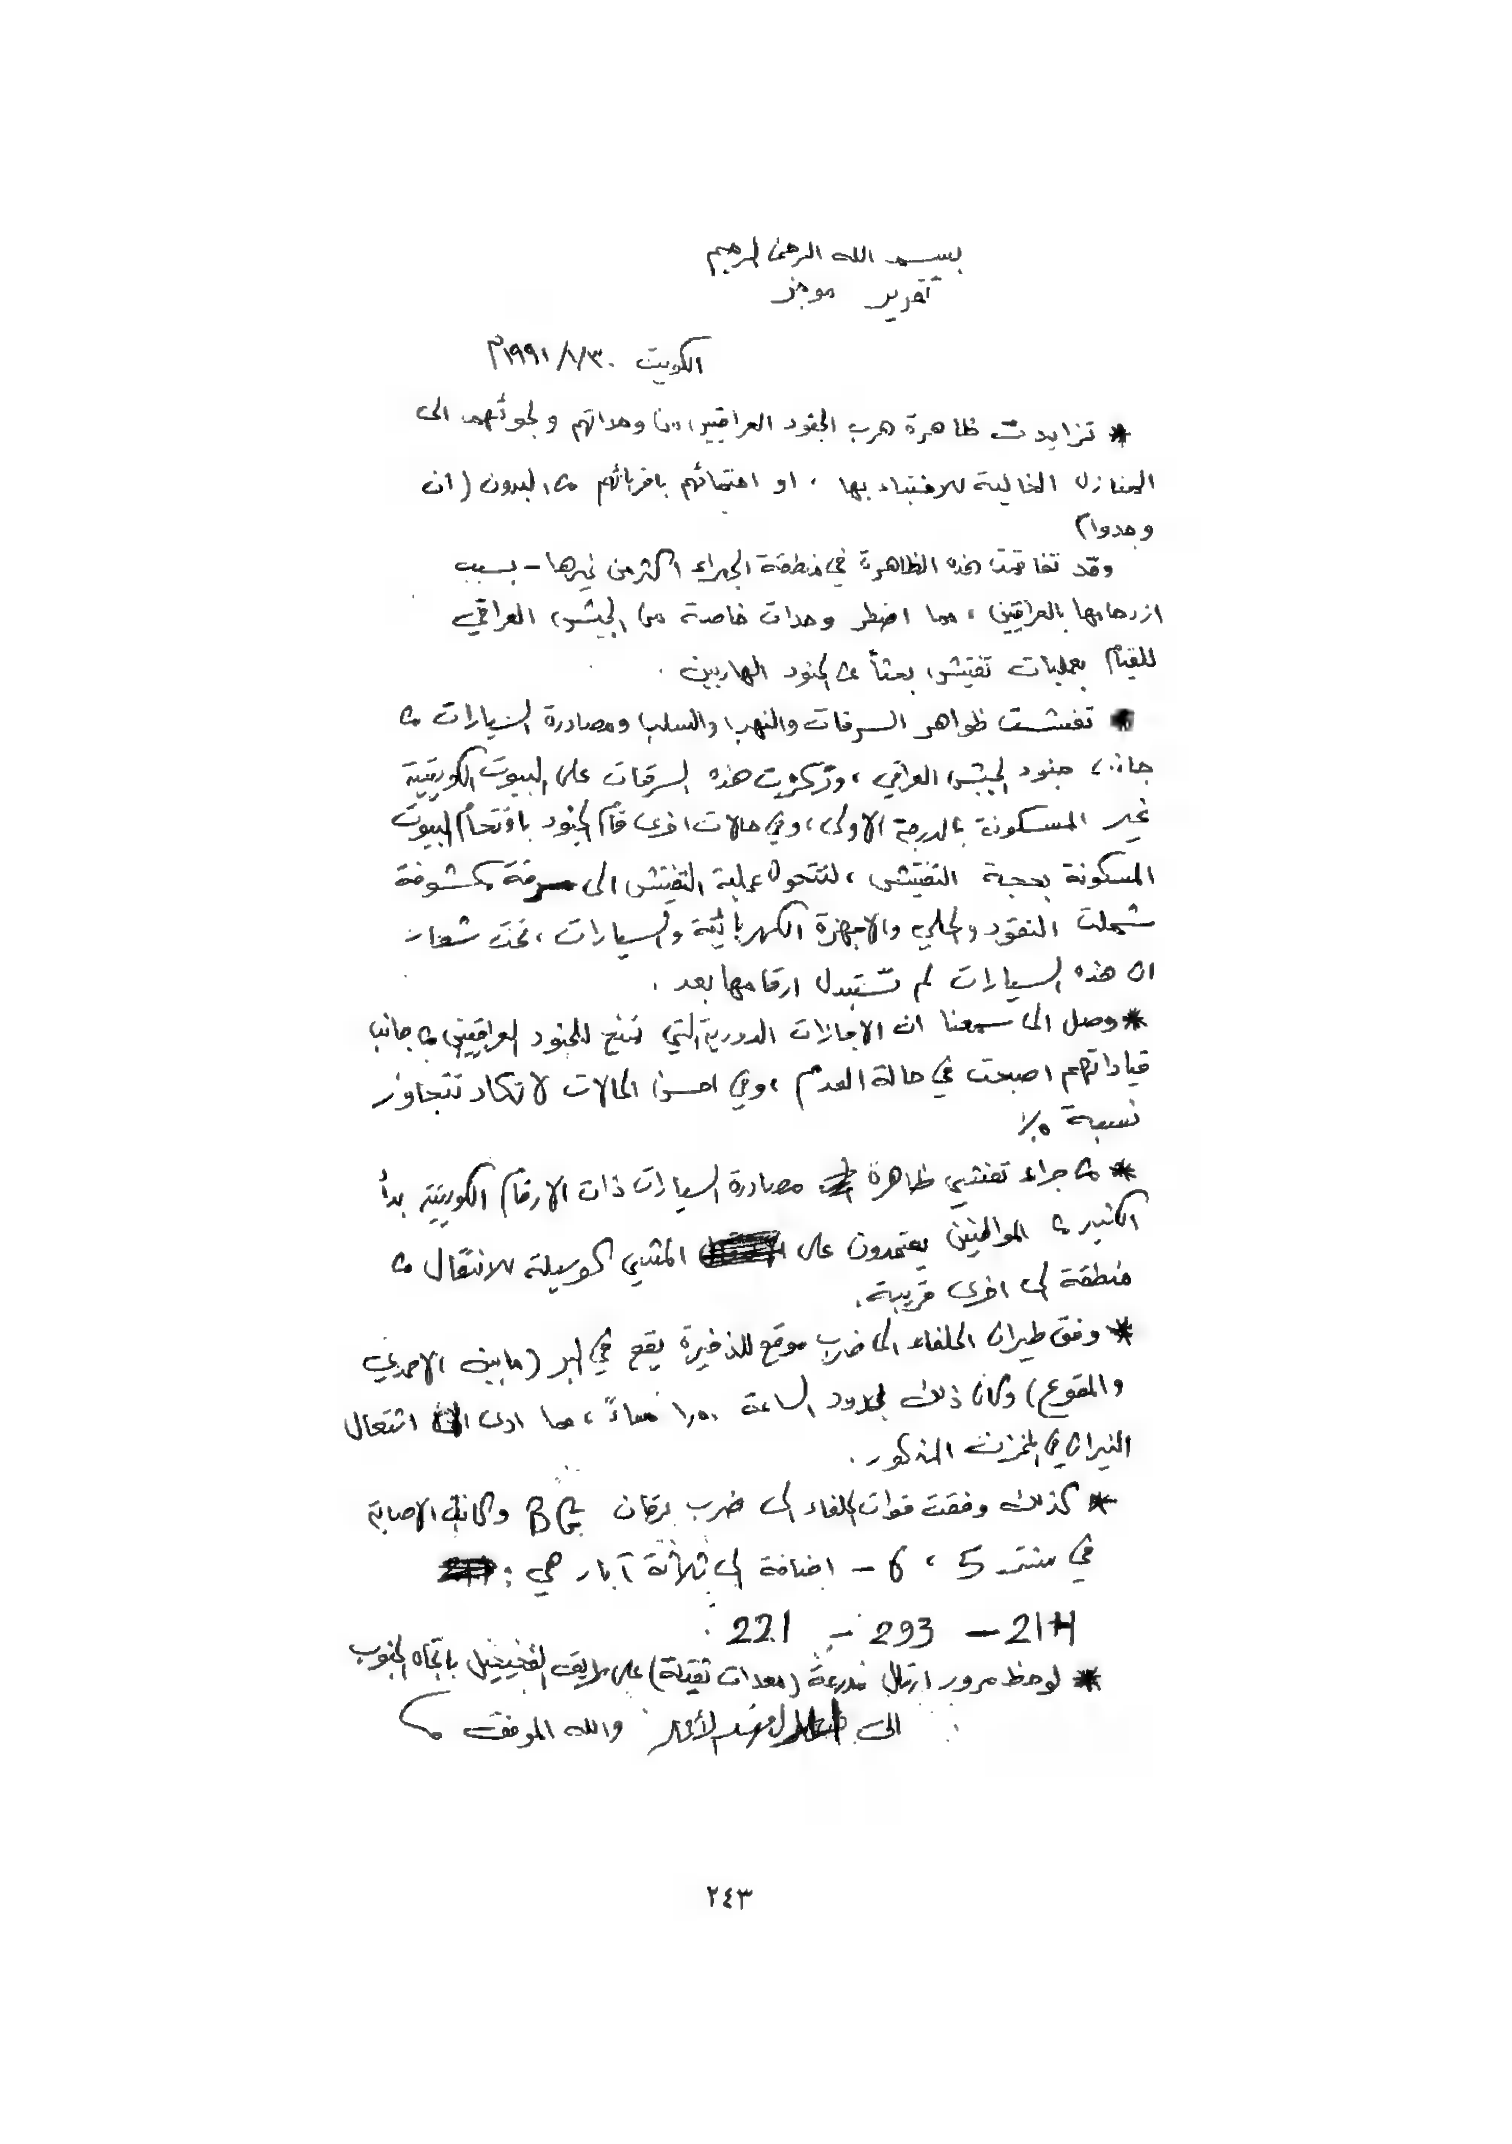 بسم الله الرحمن الرحيم
تقرير موجز
الكويت ١٩٩١/١/٣٠م
* تزايدت ظاهرة هرب الجنود العراقيين من وحداتهم ولجوئهم الى
المنازل الخالية للاختباء بها ، او احتمائهم باقربائهم من البدون (ان
وجدوا)
وقد تفاقمت هذه الظاهرة في منطقة الجهراء اكثر من غيرها - بسبب
ازدحامها بالعراقيين ، مما اضطر وحدات خاصة من الجيش العراقي
للقيام بعمليات تفتيش بحثاً عن الجنود الهاربين .
* تفشت ظواهر السرقات والنهب والسلب ومصادرة السيارات من
جانب جنود الجيش العراقي ، وتركزت هذه السرقات على البيوت الكويتية
غير المسكونة بالدرجة الاولى ، وفي حالات اخرى قام الجنود باقتحام البيوت
المسكونة بحجة التفتيش ، لتتحول عملية التفتيش الى سرقة مكشوفة
شملت النقود والحلي والاجهزة الكهربائية والسيارات ، تحت شعار
ان هذه السيارات لم تستبدل ارقامها بعد .
* وصل الى سمعنا ان الاجازات الدورية التي تمنح للجنود العراقيين من جانب
قياداتهم اصبحت في حالة العدم ، وفي احسن الحالات لا تكاد تتجاوز
نسبة ٥٪
* من جراء تفشي ظاهرة مصادرة السيارات ذات الارقام الكويتية بدأ
الكثير من المواطنين يعتمدون على المشي كوسيلة للانتقال من
منطقة الى اخرى قريبة .
* وفق طيران الحلفاء الى ضرب موقع للذخيرة يقع في البر (ما بين الاحمدي
والمقوع) وكان ذلك بحدود الساعة مساءً ، مما ادى الى اشتعال
النيران في المخزن المذكور .
* كذلك وفقت قوات الحلفاء الى ضرب برقان BG وكانت الاصابة
في سنتر 5 ، 6 - اضافة الى ثلاثة آبار هي :
214 - 293 - 221 .
* لوحظ مرور ارتال مدرعة (معدات ثقيلة) على طريق الفحيحيل باتجاه الجنوب
الى والله الموفق
٢٤٣